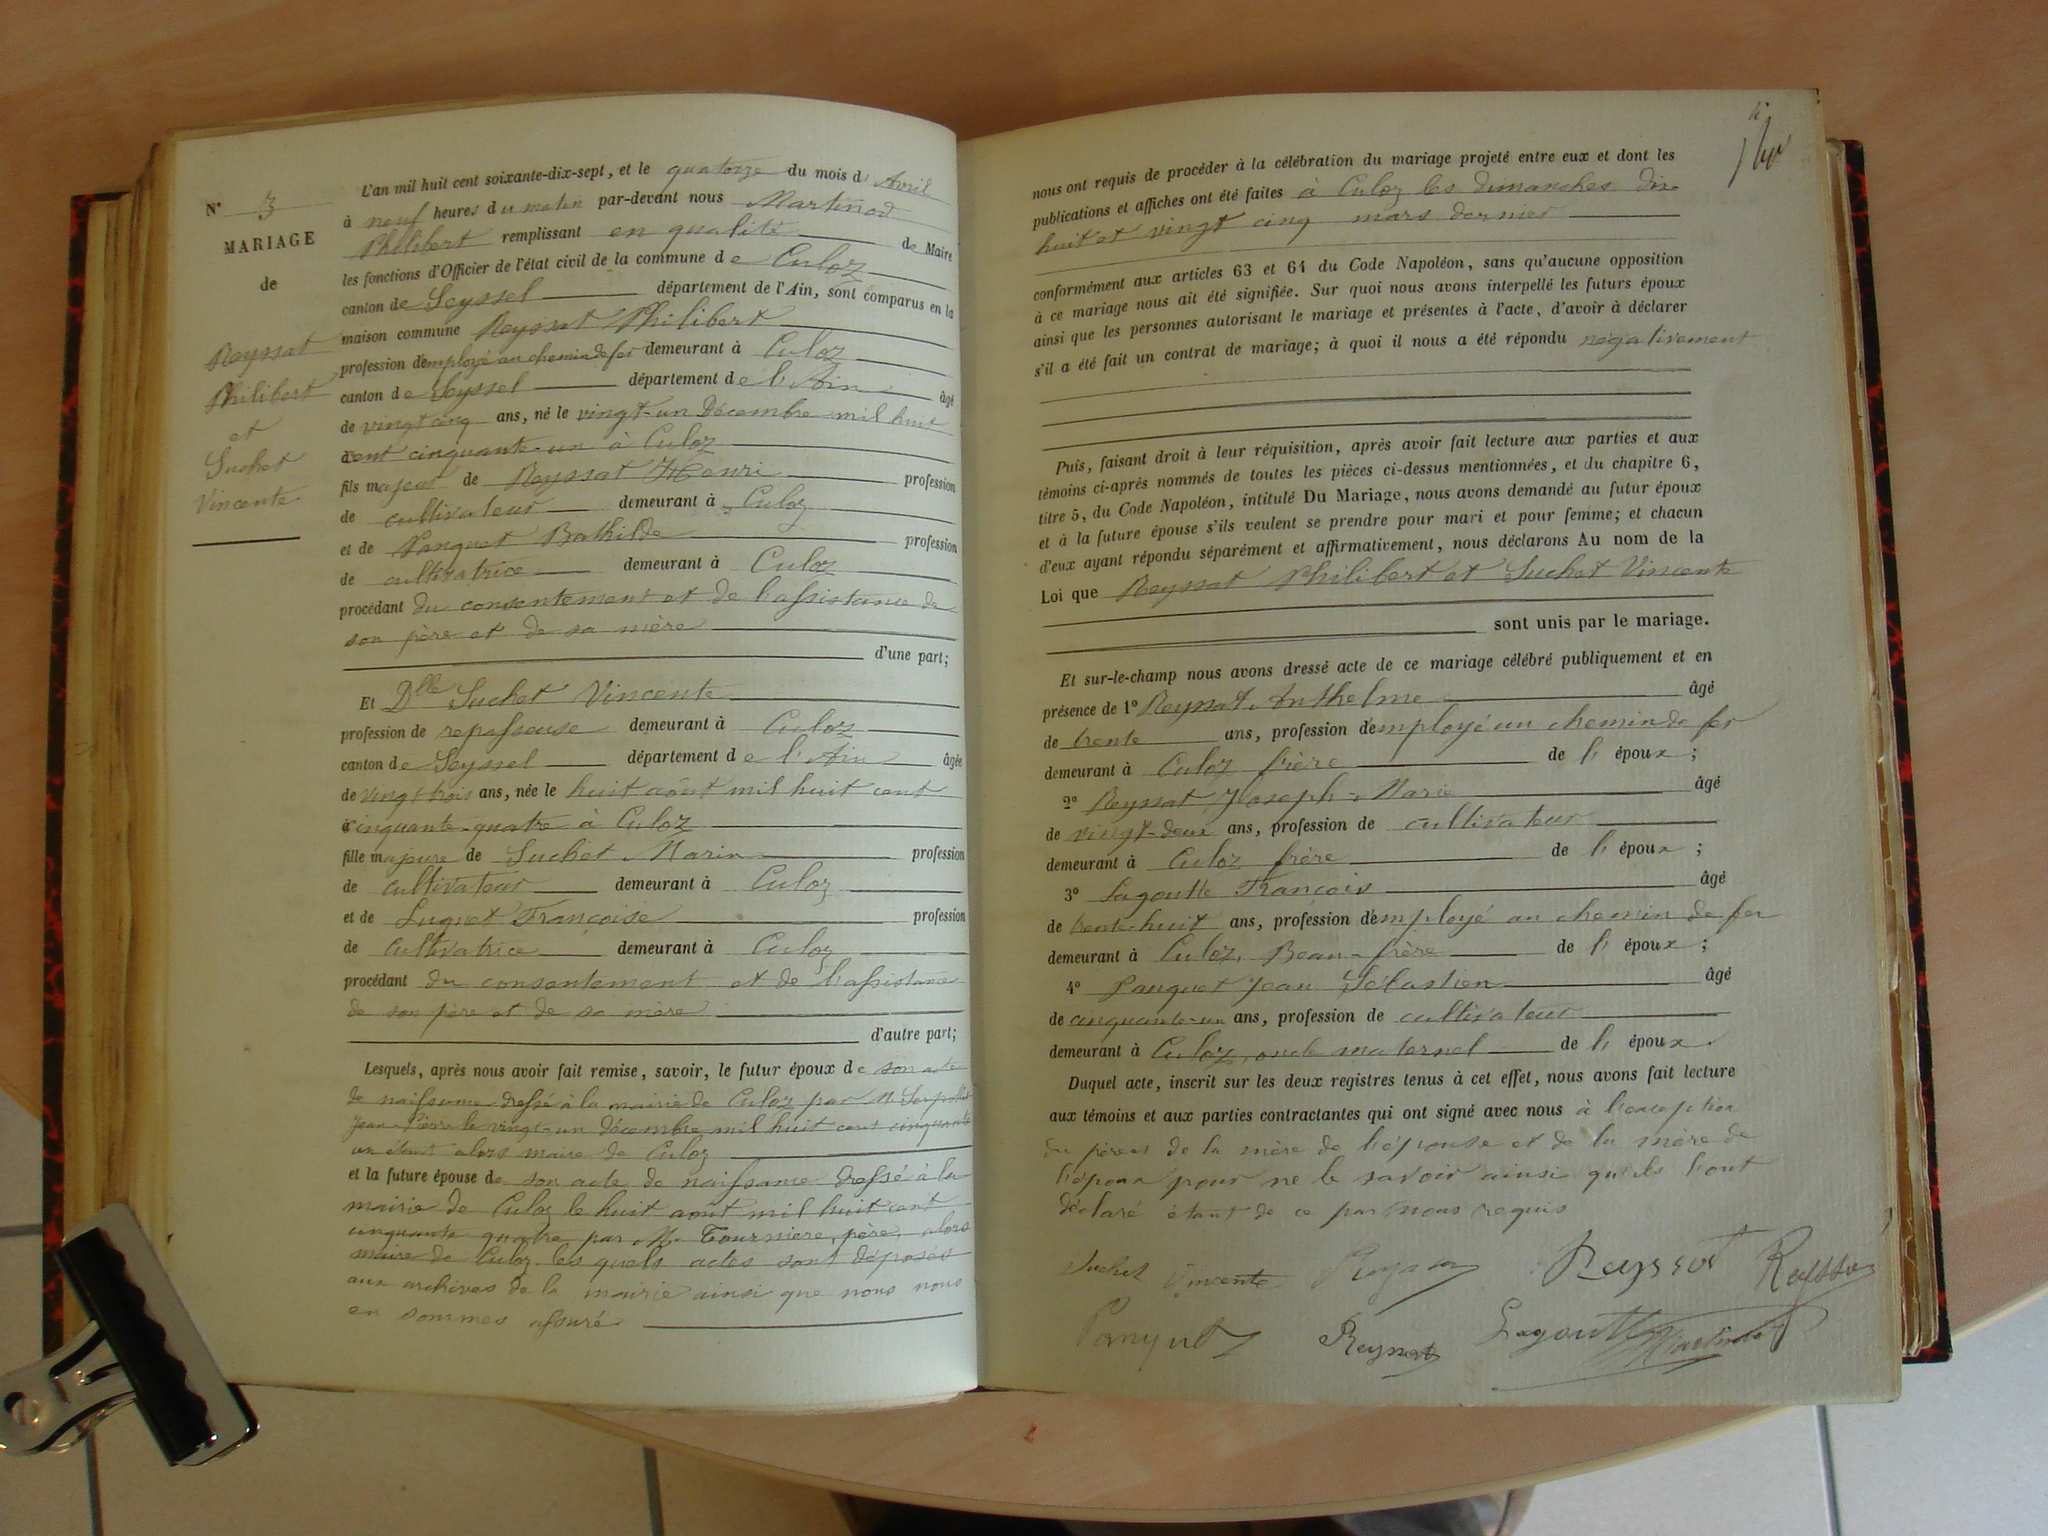 N° 3
MARIAGE
de
Reyssat
Philibert
et
Suchet
Vincente
L'an mil huit cent soixante-dix-sept, et le quatorze du mois d'Avril
à neuf heures du matin par-devant nous Martinod
Philibert remplissant en qualité de Maire
les fonctions d'Officier de l'état civil de la commune de Culoz
canton de Seyssel département de l'Ain, sont comparus en la
maison commune Reyssat Philibert
profession d'employé au chemin de fer demeurant à Culoz
canton de Seyssel département de l'Ain âgé
de vingt cinq ans, né le vingt-un Décembre mil huit
cent cinquante-un à Culoz
fils majeur de Reyssat Henri profession
de cultivateur demeurant à Culoz
et de Panquet Bathilde profession
de cultivatrice demeurant à Culoz
procédant du consentement et de l'assistance de
son père et de sa mère
d'une part;
Et Dlle Suchet Vincente
profession de repasseuse demeurant à Culoz
canton de Seyssel département de l'Ain âgée
de vingt trois ans, née le huit août mil huit cent
cinquante-quatre à Culoz
fille majeure de Suchet Marin profession
de cultivateur demeurant à Culoz
et de Luquet Françoise profession
de cultivatrice demeurant à Culoz
procédant du consentement et de l'assistance
de son père et de sa mère
d'autre part;
Lesquels, après nous avoir fait remise, savoir, le futur époux de son acte
de naissance dressé à la mairie de Culoz par M. Serpollet
Jean-Pierre le vingt-un décembre mil huit cent cinquante
un étant alors maire de Culoz
et la future épouse de son acte de naissance dressé à la
mairie de Culoz le huit août mil huit cent
cinquante quatre par M. Tournière, père, alors
maire de Culoz les quels actes sont déposés
aux archives de la mairie ainsi que nous nous
en sommes assuré
nous ont requis de procéder à la célébration du mariage projeté entre eux et dont les
publications et affiches ont été faites à Culoz les dimanches dix
huit et vingt cinq mars dernier
conformément aux articles 63 et 64 du Code Napoléon, sans qu'aucune opposition
à ce mariage nous ait été signifiée. Sur quoi nous avons interpellé les futurs époux
ainsi que les personnes autorisant le mariage et présentes à l'acte, d'avoir à déclarer
s'il a été fait un contrat de mariage; à quoi il nous a été répondu négativement
Puis, faisant droit à leur réquisition, après avoir fait lecture aux parties et aux
témoins ci-après nommés de toutes les pièces ci-dessus mentionnées, et du chapitre 6,
titre 5, du Code Napoléon, intitulé Du Mariage, nous avons demandé au futur époux
et à la future épouse s'ils veulent se prendre pour mari et pour femme; et chacun
d'eux ayant répondu séparément et affirmativement, nous déclarons Au nom de la
Loi que Reyssat Philibert et Suchet Vincente
sont unis par le mariage.
Et sur-le-champ nous avons dressé acte de ce mariage célébré publiquement et en
présence de 1° Reyssat Anthelme âgé
de trente ans, profession d'employé au chemin de fer
demeurant à Culoz frère de l'époux;
2° Reyssat Joseph-Marie âgé
de vingt-deux ans, profession de cultivateur
demeurant à Culoz frère de l'époux;
3° Lagoutte François âgé
de trente-huit ans, profession d'employé au chemin de fer
demeurant à Culoz, Beau-frère de l'époux;
4° Panquet Jean Sébastien âgé
de cinquante-un ans, profession de cultivateur
demeurant à Culoz, oncle maternel de l'époux.
Duquel acte, inscrit sur les deux registres tenus à cet effet, nous avons fait lecture
aux témoins et aux parties contractantes qui ont signé avec nous à l'exception
du père et de la mère de l'épouse et de la mère de
l'époux pour ne le savoir ainsi qu'ils l'ont
déclaré étant de ce par nous requis
Suchet Vincente Reyssat Reyssat Reyssat
Panquet Reyssat Lagoutte Martinod